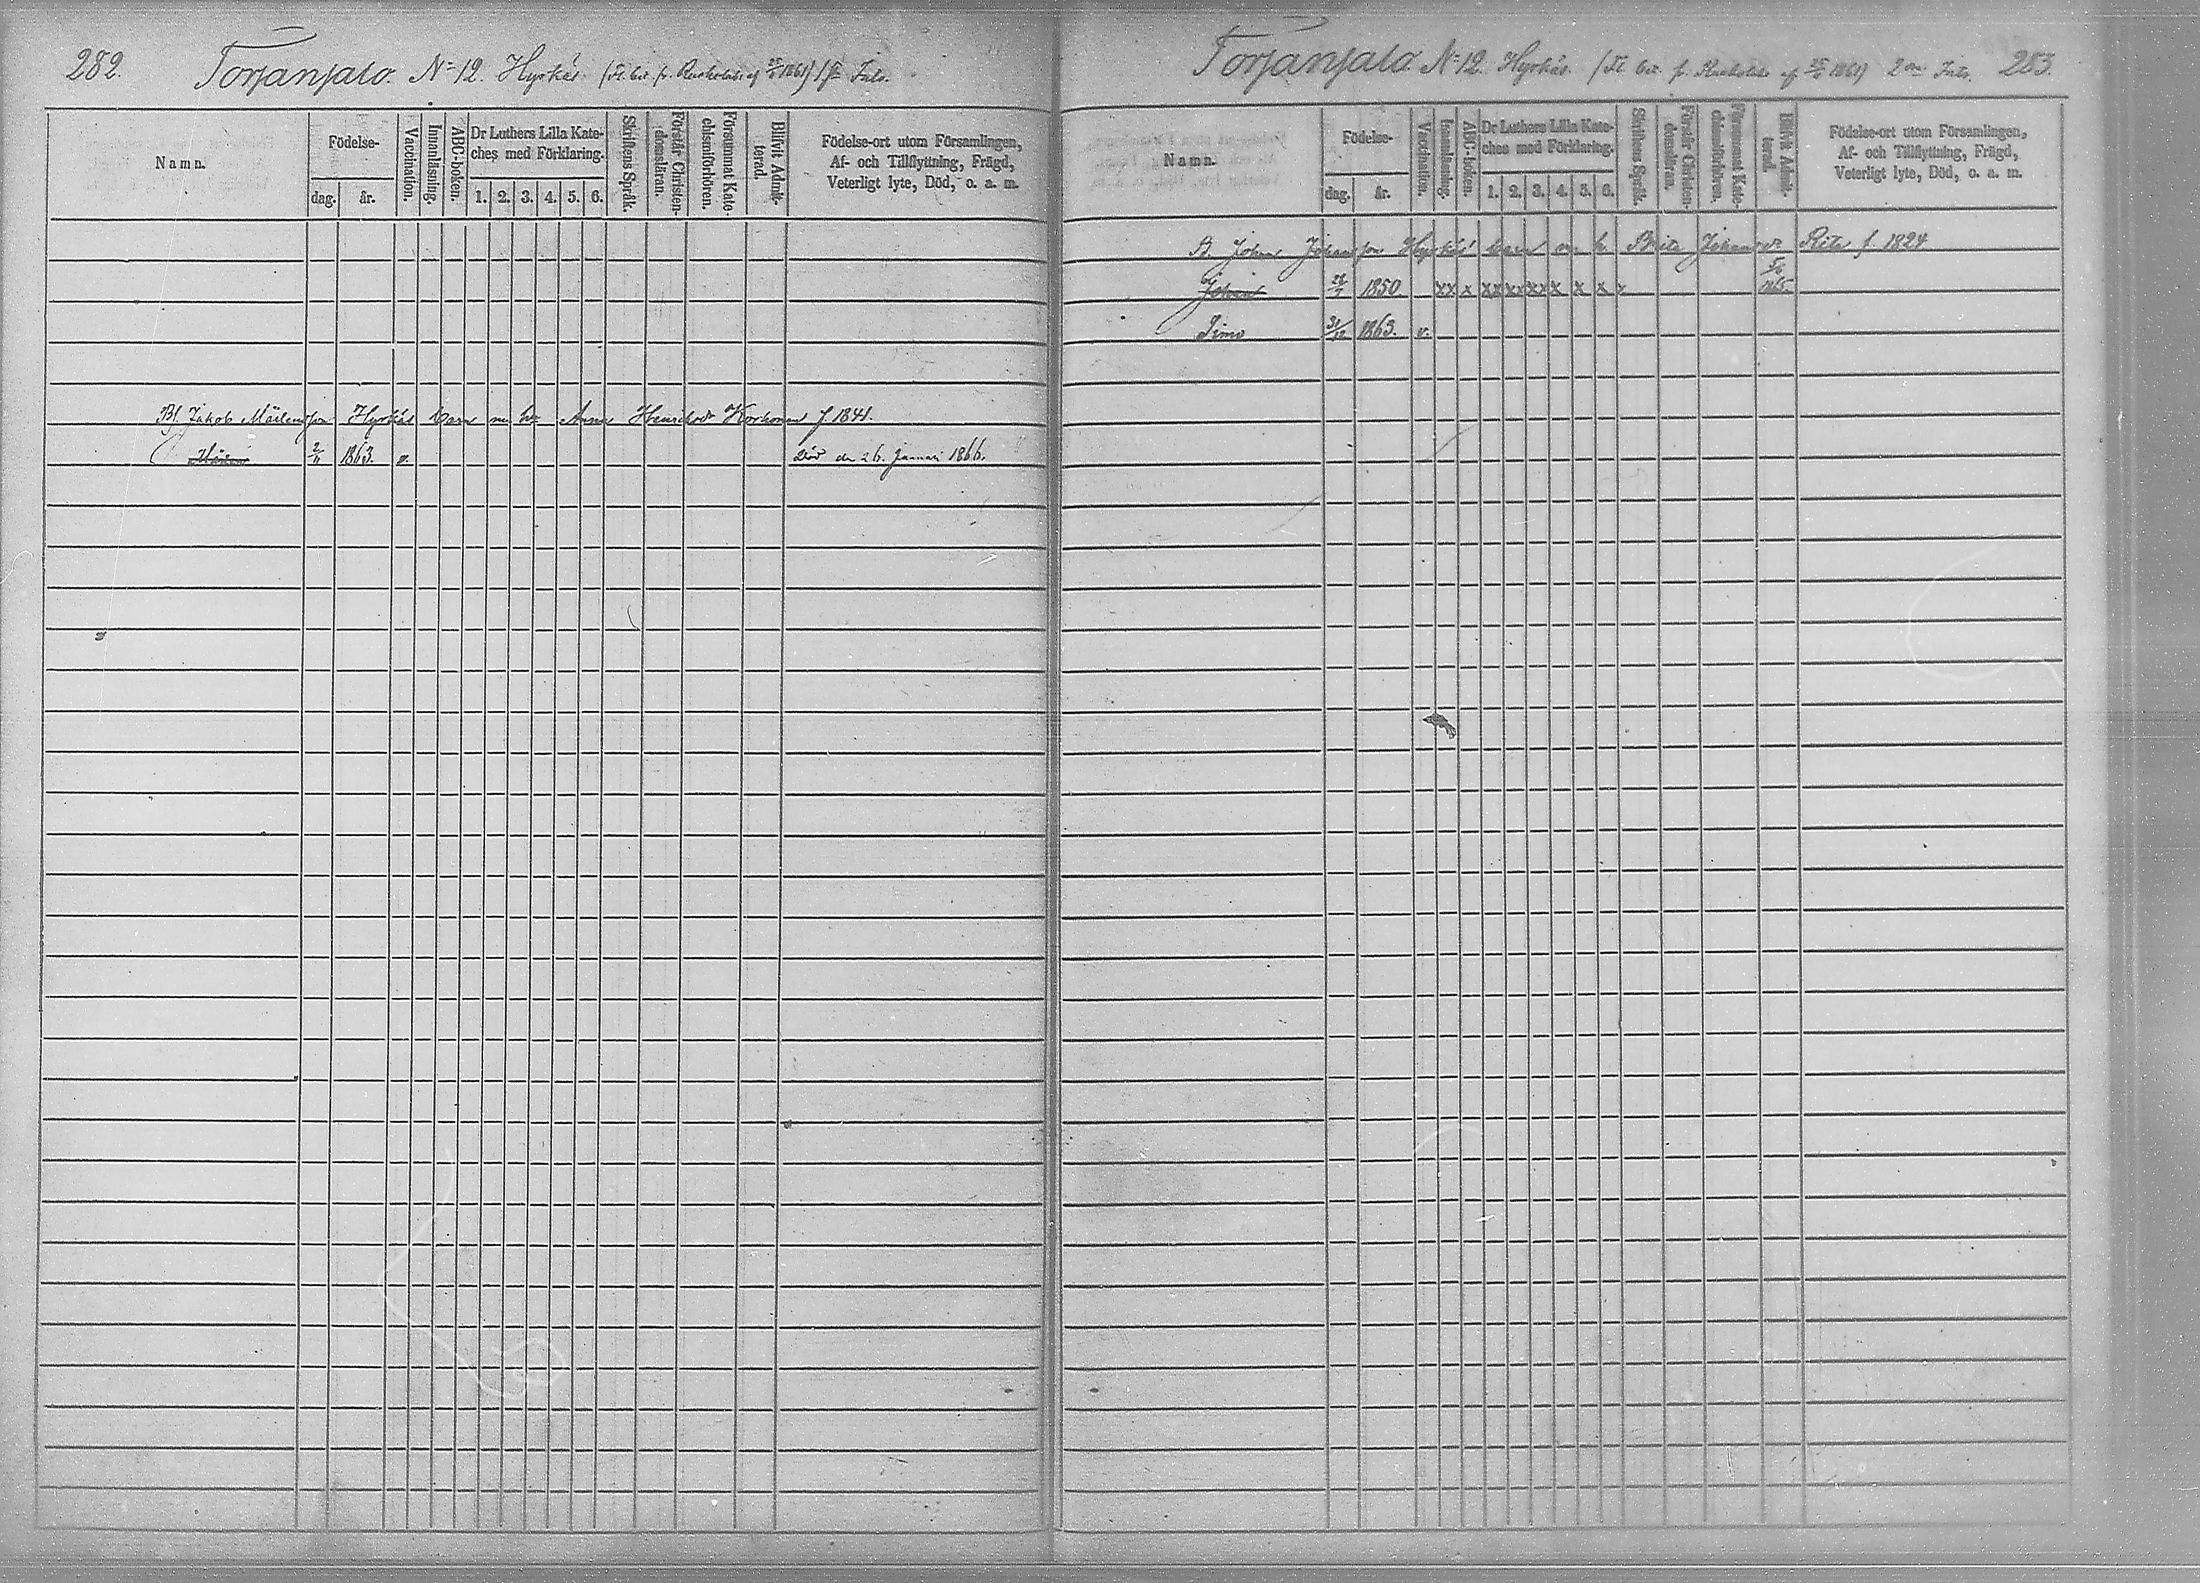 282. Torsansalo. N=12. Hyrkäs.
Namn.
Födelse-
dag.
år.
Vaccination.
Innanläsning.
ABC-boken.
Dr Luthers Lilla Kate-
ches med Förklaring.
1. 2. 3. 4. 5. 6.
Skriftens Språk.
Förstår Christen-
domsläran.
Försummat Kate-
chismiförhören.
Blifvit Admit-
terad.
Födelse-ort utom Församlingen,
Af- och Tillflyttning, Frägd,
Veterligt lyte, Död, o. a. m.
Jakob Hyrkäs Barn Anna Korhonen f. 1841.
2/11 1863. v. Död den 26. Januari 1866.
Torsansalo N=12 Hyrkäs. 283.
Namn.
Födelse-
dag.
år.
Vaccination.
Innanläsning.
ABC-boken.
Dr Luthers Lilla Kate-
ches med Förklaring.
1. 2. 3. 4. 5. 6.
Skriftens Språk.
Förstår Christen-
domsläran.
Försummat Kate-
chismiförhören.
Blifvit Admit-
terad.
Födelse-ort utom Församlingen,
Af- och Tillflyttning, Frägd,
Veterligt lyte, Död, o. a. m.
B. Johan Johansson Hyrkäs' Barn f. 1824
Johan 1850 xx x xx xx xx x x x x
Simo 31/12 1863. v.